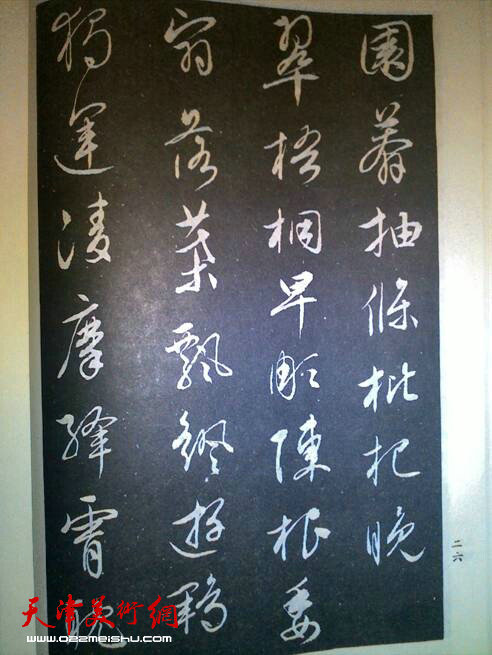 園莽抽條枇杷晚
翠梧桐早彫陳根委
翳落葉飄颻遊鵾
獨運凌摩絳霄耽
二六
天津美术網
www.022meishu.com